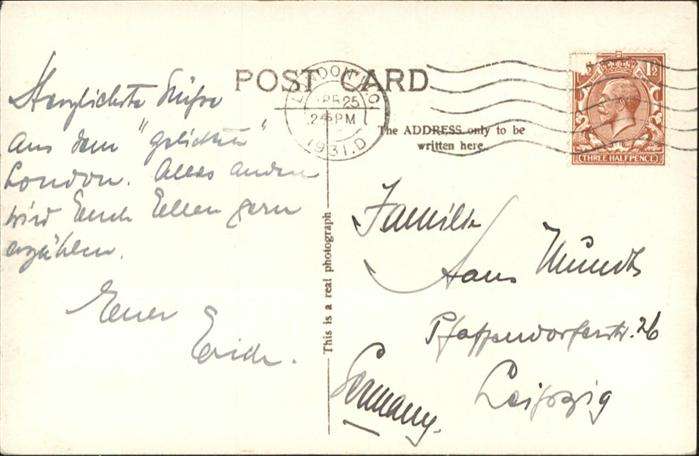 POST CARD
LONDON
APR 25
2 45 PM
1931. D
1½
THREE HALFPENCE
The ADDRESS only to be
written here.
This is a real photograph
Herzlichste Grüße
aus dem "geliebten"
London. Alles andere
wird Euch Ellen gern
erzählen.
Euer
Erich.
Familie
Hans Mundt
Pfaffendorferstr. 26
Leipzig
Germany.